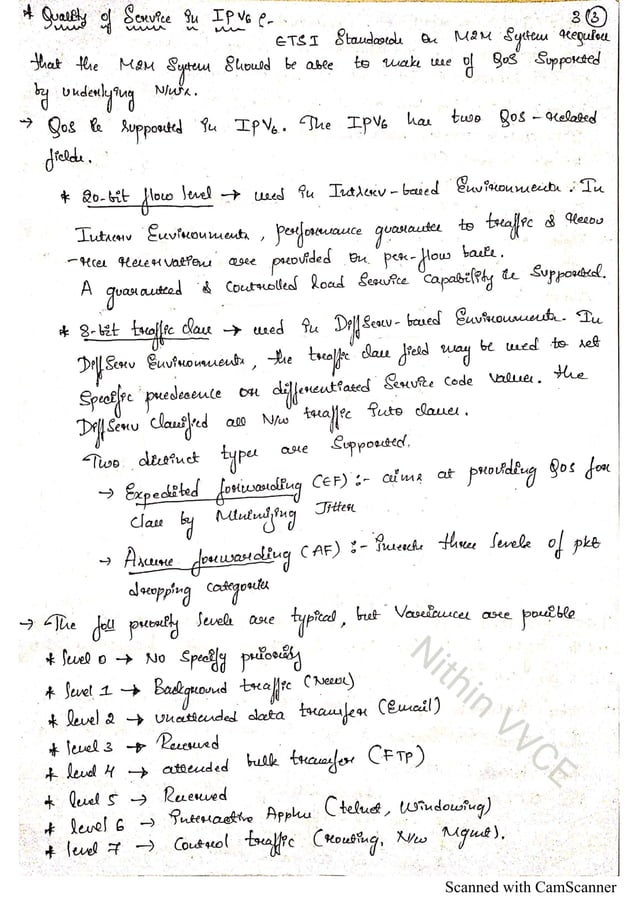 * Quality of Service in IPV6 :- 3 (3)
ETSI Standards on M2M System require
that the M2M System Should be able to make use of QoS Supported
by underlying N/w.
→ QoS is Supported in IPV6. The IPV6 has two QoS - Related
fields.
* 20-bit flow level → used in IntServ-based Environments. In
Intserv Environments, performance guarantee to traffic & Resou
-rces reservations are provided on per-flow basis.
A guaranteed & controlled load Service Capability is Supported.
* 8-bit traffic class → used in DiffServ-based Environments. In
DiffServ Environments, the traffic class field may be used to set
Specific predesence or differentiated Service Code Values. the
DiffServ Classified all N/w traffic into classes.
Two distinct types are Supported.
→ Expedited forwarding (EF) :- aims at providing QoS for
class by Minimizing Jitter
→ Assure forwarding (AF) :- three levels of pkt
dropping categories
→ The foll priority levels are typical, but Variances are possible
* level 0 → No Specify priority
* level 1 → Background traffic (News)
* level 2 → unattended data transfer (Email)
* level 3 → Reserved
* level 4 → attended bulk transfer (FTP)
* level 5 → Reserved
* level 6 → Interactive Applns (telnet, windowing)
* level 7 → Control traffic (routing, N/w Mgmt).
Nithin VVCE
Scanned with CamScanner